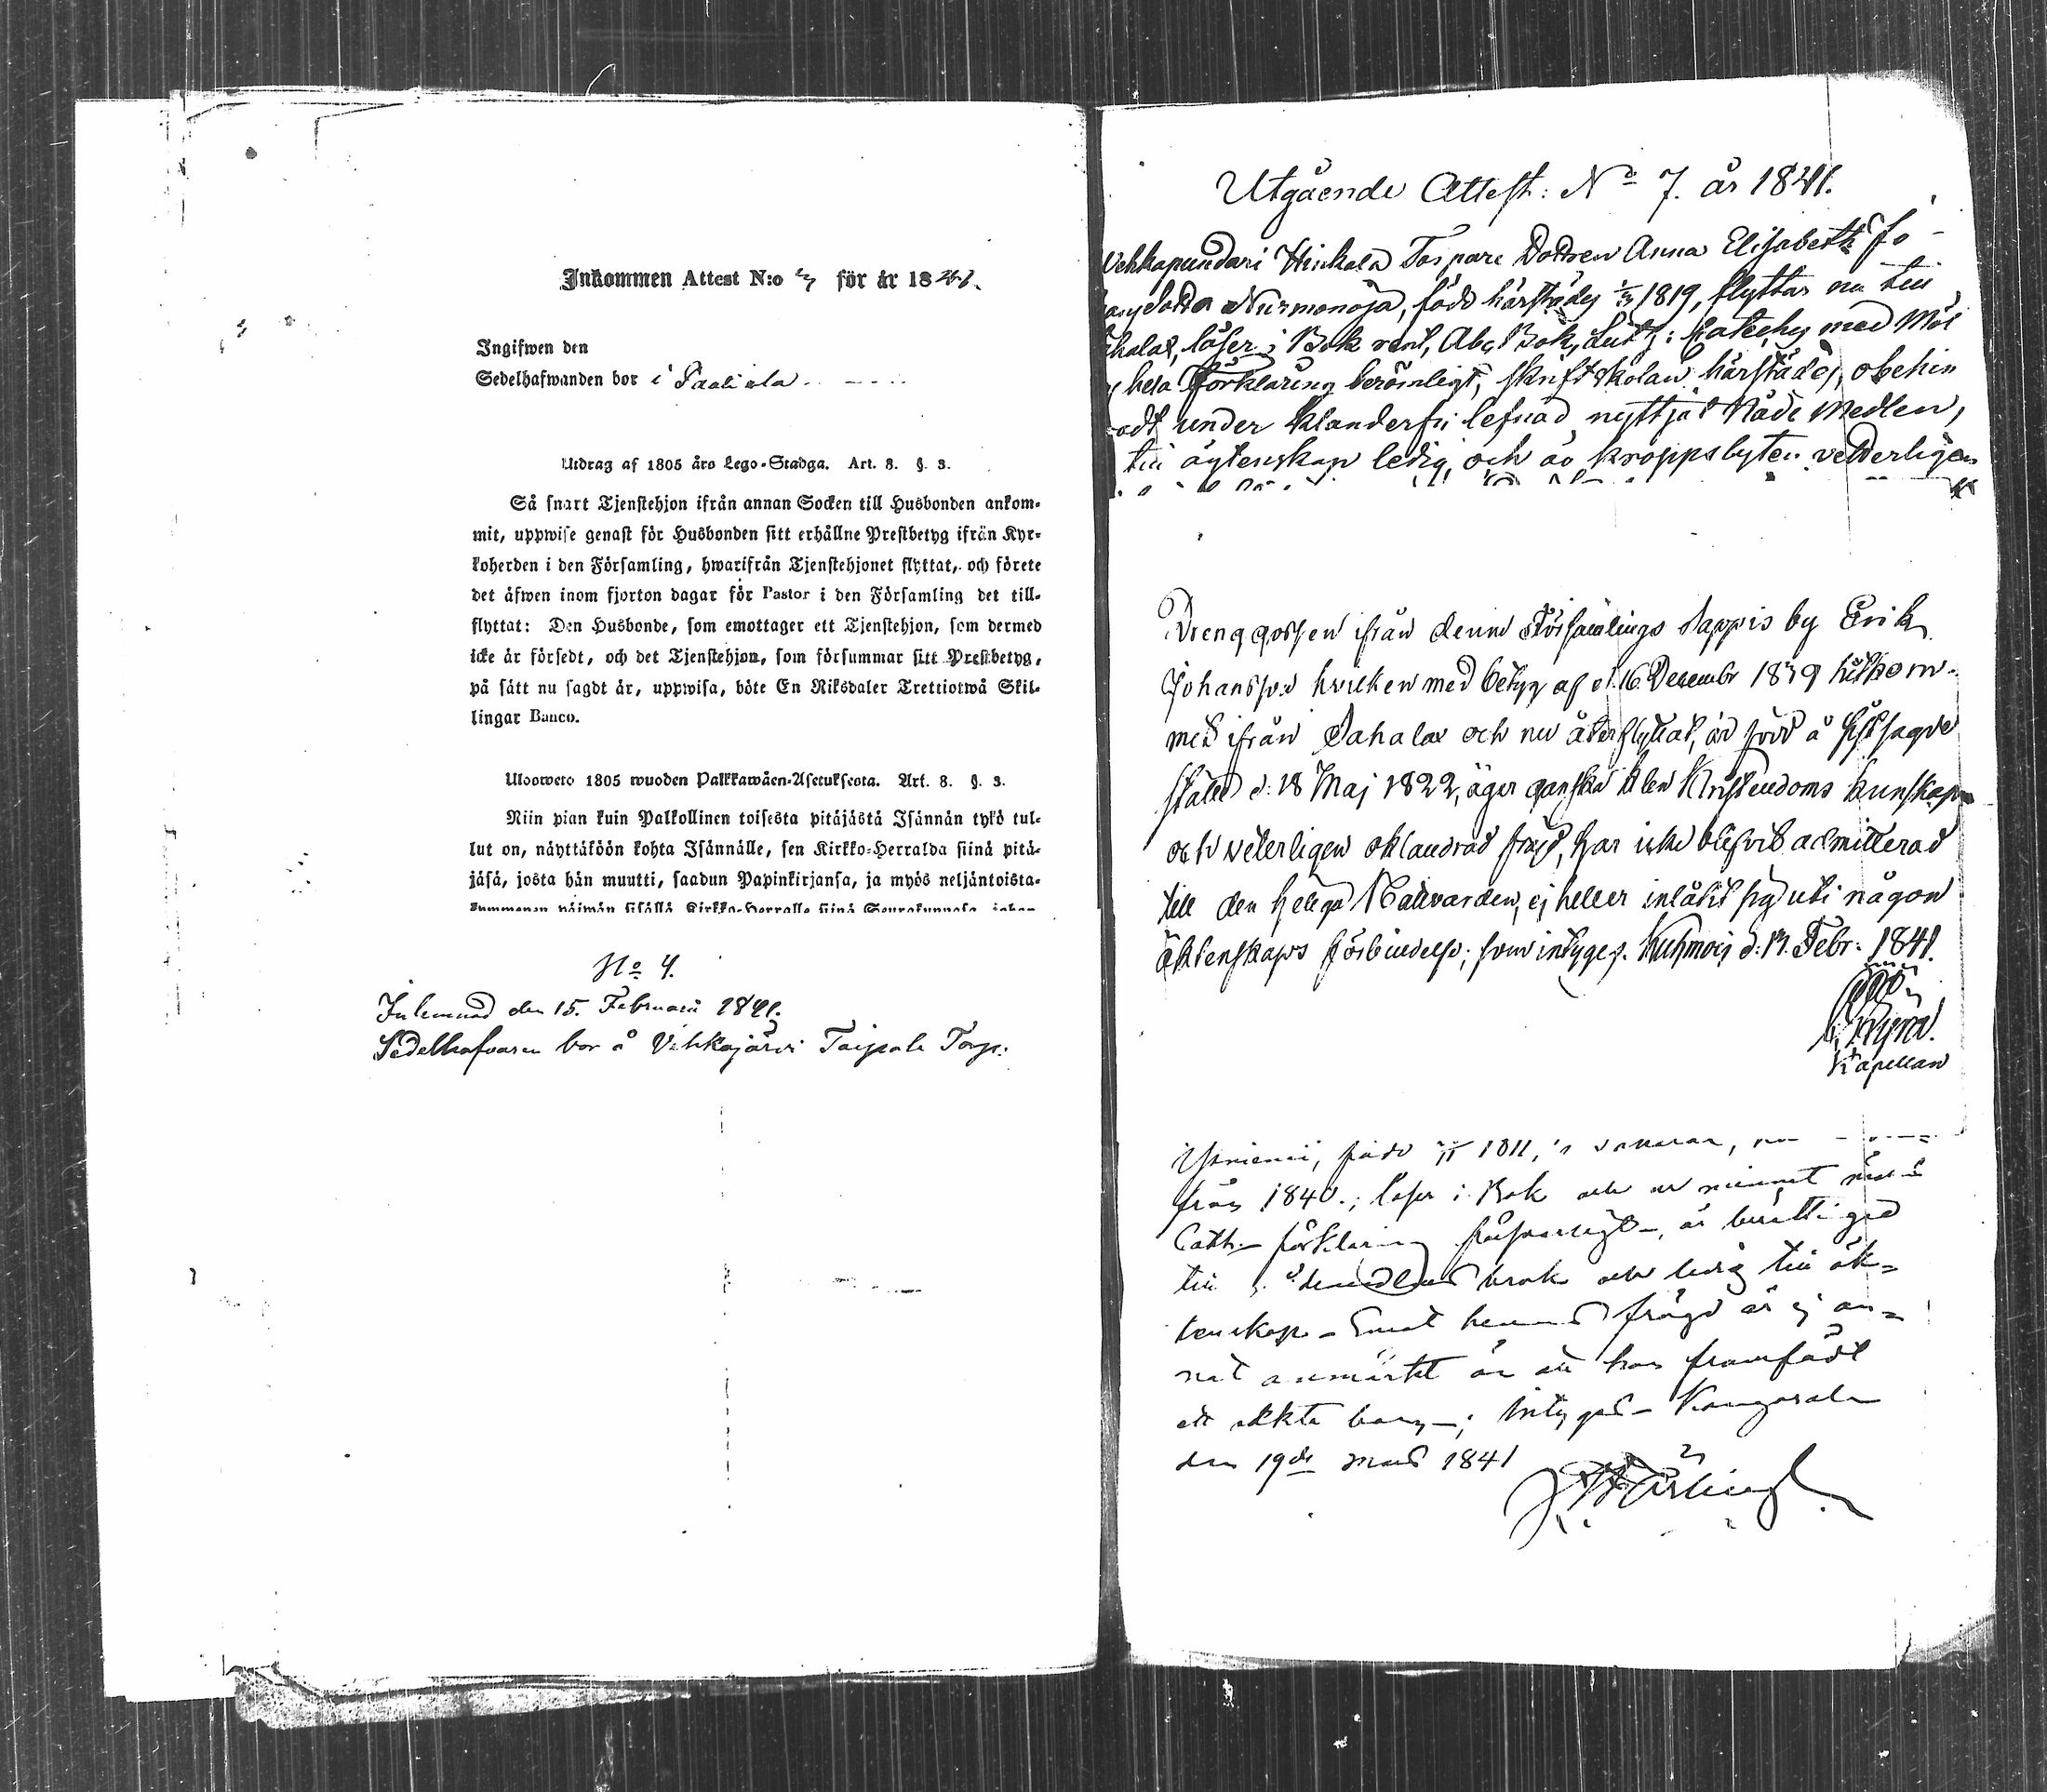 Inkommen Attest N:o för år 1841.
Ingifwen den
Sedelhafwanden bor i
Utdrag af 1805 års Lego-Stadga. Art. 8. §. 3.
Så snart Tjenstehjon ifrån annan Socken till Husbonden ankom-
mit, uppwise genast för Husbonden sitt erhållne Prestbetyg ifrån Kyr-
koherden i den Församling, hwarifrån Tjenstehjonet flyttat, och förete
det äfwen inom fjorton dagar för Pastor i den Församling det till-
flyttat: Den Husbonde, som emottager ett Tjenstehjon, som dermed
icke är försedt, och det Tjenstehjon, som försummar sitt Prestbetyg,
på sätt nu sagdt är, uppwisa, böte En Riksdaler Trettiotwå Skil-
lingar Banco.
Ulosweto 1805 wuoden Palkkawäen-Asetuksesta. Art. 8. §. 3.
Niin pian kuin Palkollinen toisesta pitäjästä Isännän tykö tul-
lut on, näyttäköön kohta Isännälle, sen Kirkko-Herralda siinä pitä-
jäsä, josta hän muutti, saadun Papinkirjansa, ja myös neljäntoista-
kymmenen päiwän sisällä Kirkko-Herralle siinä Seurakunnasa, johon
No 4.
Inlemnad den 15. Februarii 1841.
Sedelhafvaren bor å Vehkajärvi Taipale Torp.
Utgående Attest: No 7. år 1841.
Vehkapundari Hinkala Torpare Dottren Anna Elisabeth Jo-
Nurmonoja, född härstädes 1819, flyttar nu till
läser i Bok rent, Abc Bok, Luth: Cateches med
hela Förklaring berömligt, skriftskolan härstädes, obehin
under klanderfri lefnad nyttjat Nåde Medlen,
till ägtenskap ledig och av kroppslyten vetterligen
Drenggossen ifrån denna Församlings Sappis by Erik
Johansson hvilken med betyg af d. 16 Decembr 1839 hitkom-
mit ifrån Sahalax och nu återflyttat, är född å sistsagde
ställe d: 18 Maj 1822, äger ganska klen Kristendoms kunskap
och veterligen oklandrad frejd, har icke blifvit admitterad
till den heliga Nattvarden, ej heller inlåtit sig uti någon
äktenskaps förbindelse; som intyges. Kuhmois d: 13. Febr: 1841.
Kapellan
född 1811,
från 1840.; läser i Bok och ur minnet
Cath. förklaring försvarligt, är berättigad
till bruk och ledig till äk-
tenskap - Emot hennes frägd är ej an-
nat anmärkt än att hon framfödt
ett oäkta barn; intygas - Kangasala
den 19de Mars 1841